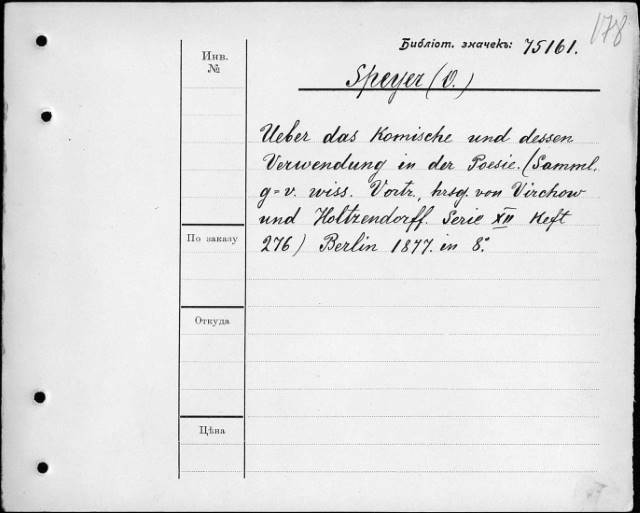 178
Библіот. значекъ: 75161.
Инв.
№
Speyer (O.)
Ueber das Komische und dessen
Verwendung in der Poesie. (Samml.
g=v. wiss. Vortr., hrsg. von Virchow
und Holtzendorff. Serie XII Heft
276) Berlin 1877. in 8°.
По заказу
Откуда
Цѣна